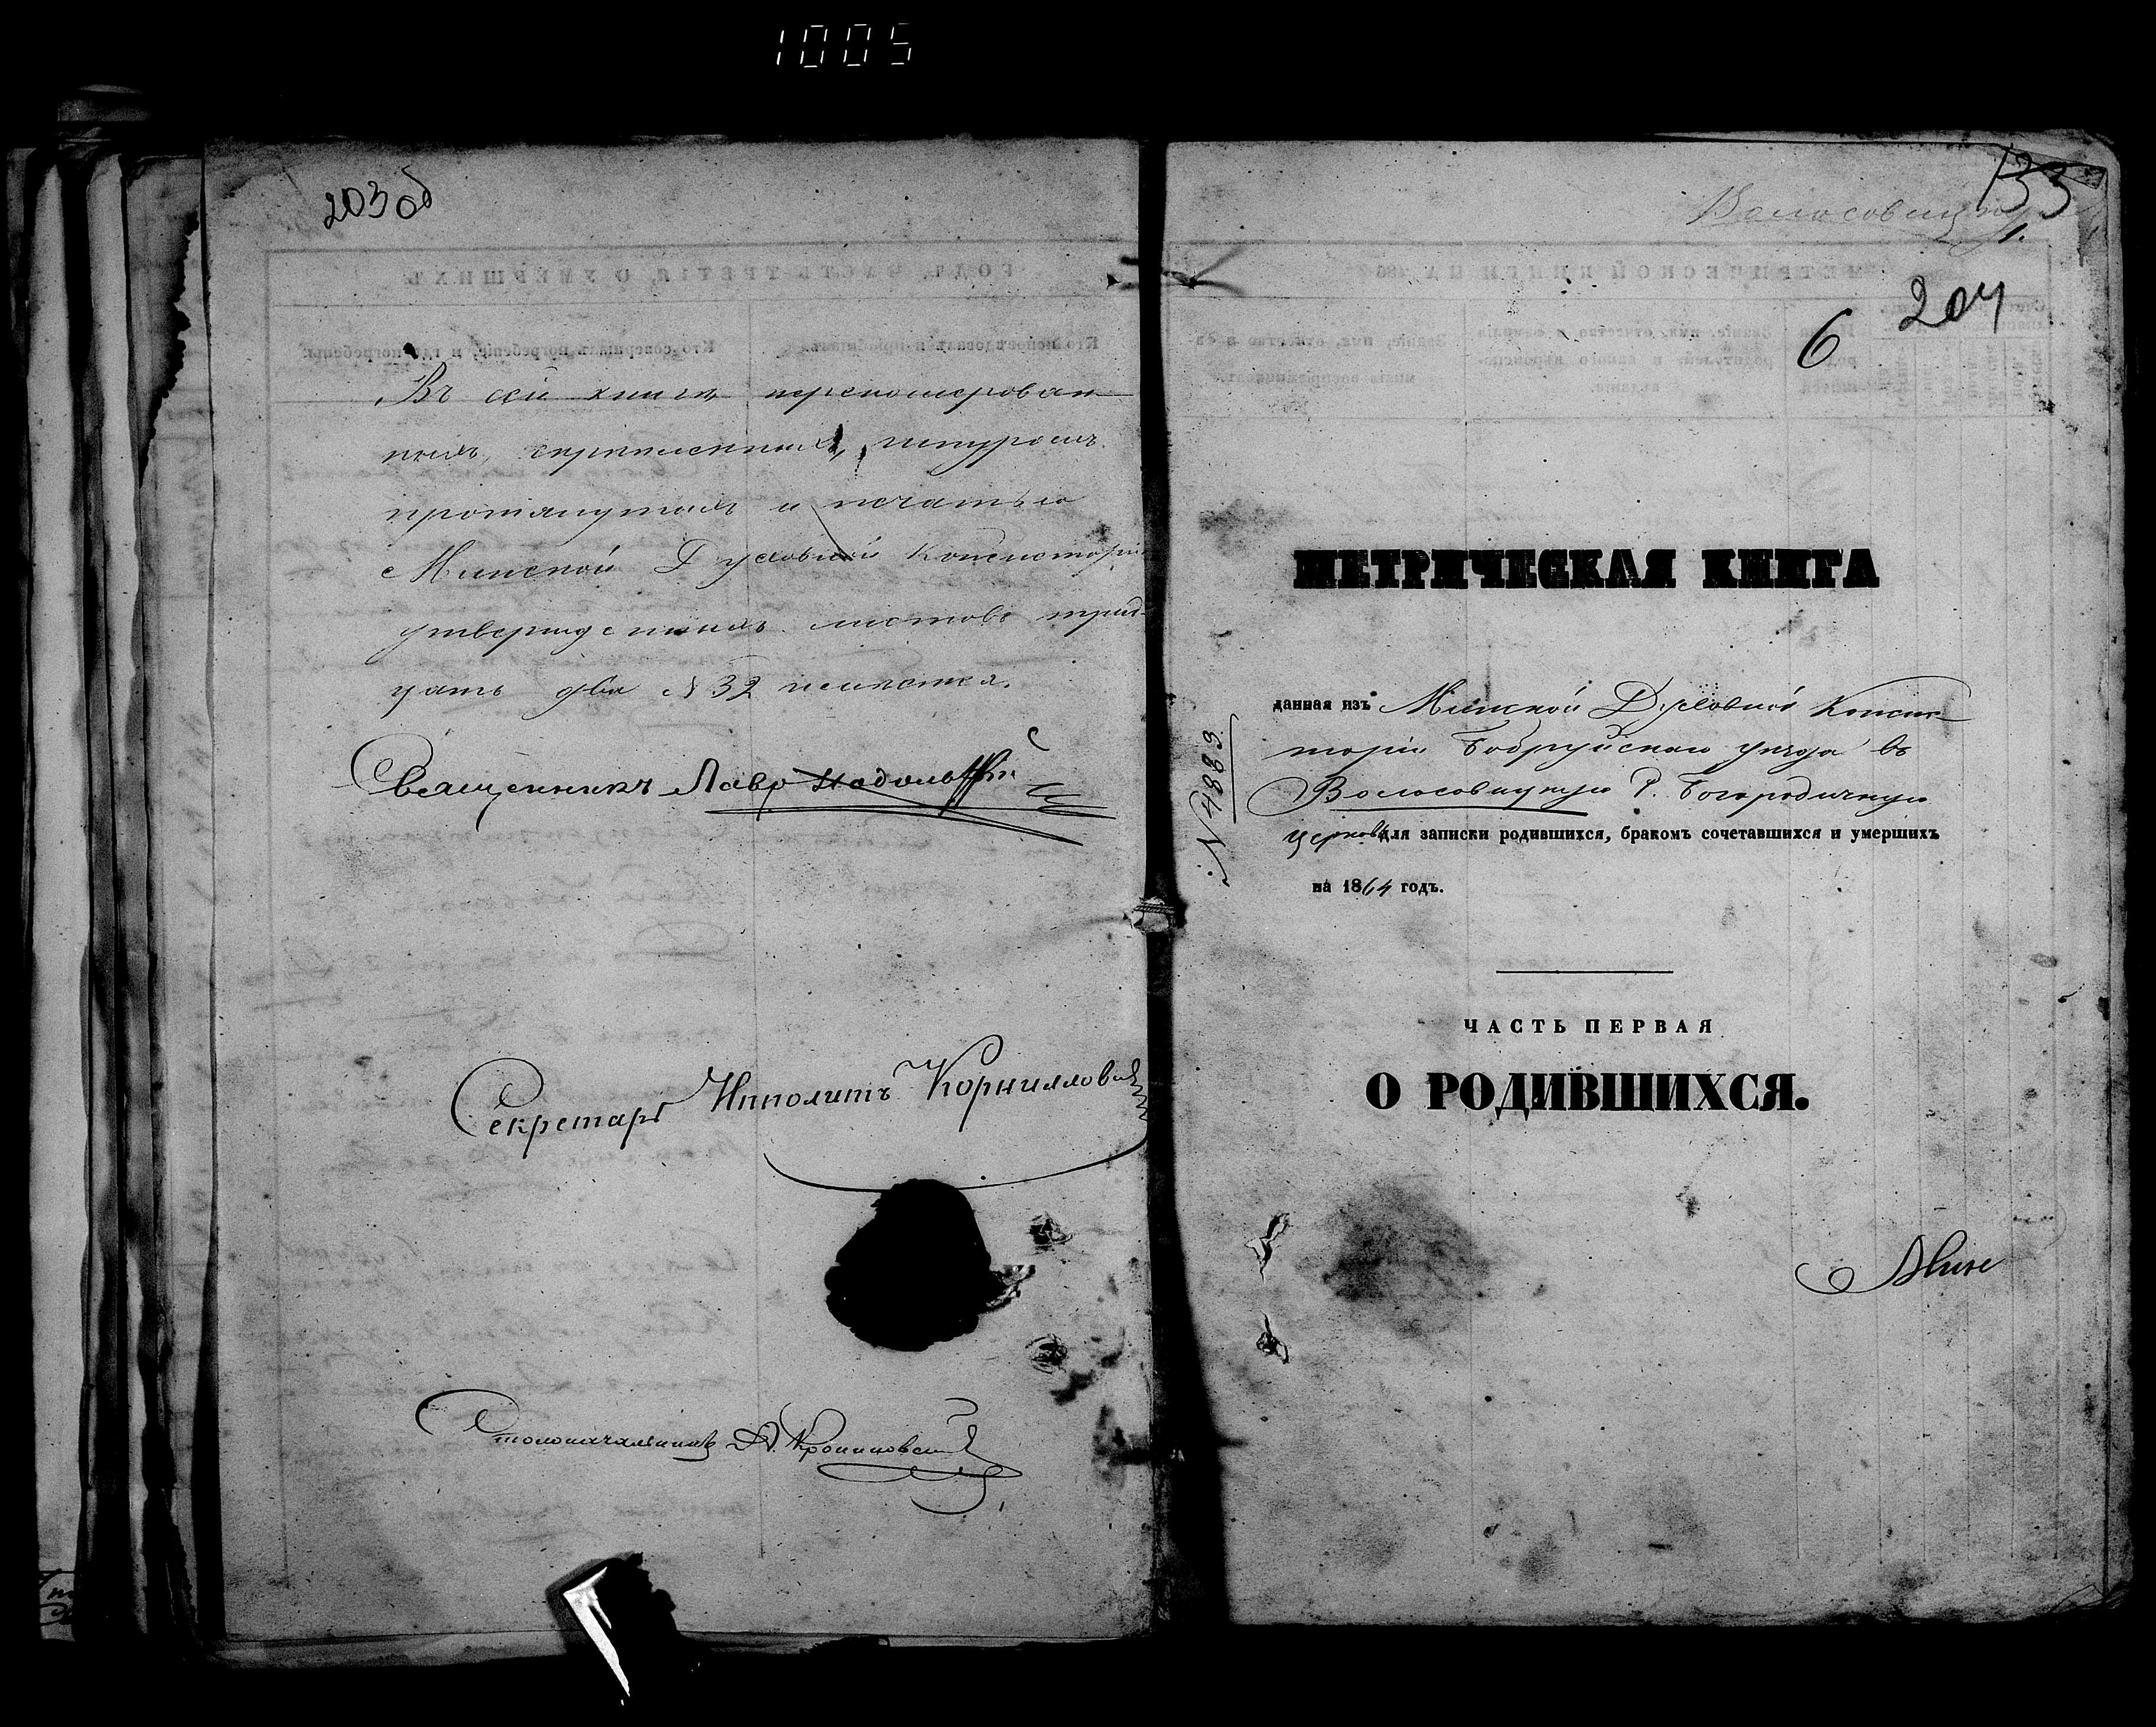 1005
203 об
Въ сей книгѣ перенумерован
ныхъ, скрѣпленныхъ, шнуромъ
протянутыхъ и печатью
Минской Духовной Консисторіи
утвержденныхъ листовъ трид
цать два № 32 имѣются.
Священникъ Лавр
Секретарь Ипполитъ Корниллович
Столоначальникъ
133
1.
204
6
МЕТРИЧЕСКАЯ КНИГА
данная изъ Минской Духовной Консис
торіи Бобруйскаго уѣзда въ
Волосовицкую Р. Богородичную
церковь для записки родившихся, бракомъ сочетавшихся и умершихъ
на 1864 годъ.
№ 4889
ЧАСТЬ ПЕРВАЯ
О РОДИВШИХСЯ.